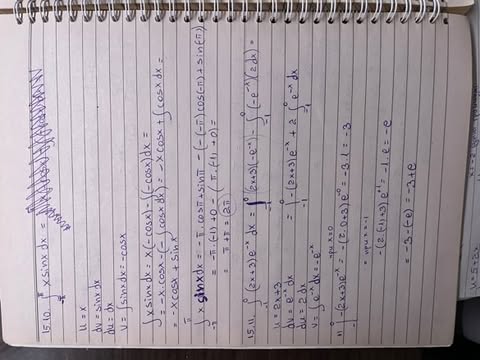 15.10. ∫_{-π}^{π} x sinx dx =
u = x
dv = sinx dx
du = dx
v = ∫sinx dx = -cosx
∫x sinx dx = x(-cosx) - ∫(-cosx)dx =
= -x.cosx - (-∫cosx dx) = -xcosx + ∫cosx dx =
= -xcosx + sinx
∫_{-π}^{π} x sinx dx = -π.cosπ + sinπ - (-(-π)cos(-π) + sin(-π))
= -π.(-1) + 0 - (π.(-1) + 0) =
= π + π = 2π
15.11. ∫_{-1}^{0} (2x+3)e^{-x} dx = |_{-1}^{0} (2x+3)(-e^{-x}) - ∫_{-1}^{0} (-e^{-x})(2dx) =
u = 2x+3
dv = e^{-x} dx = |_{-1}^{0} -(2x+3)e^{-x} + 2 ∫_{-1}^{0} e^{-x} dx
du = 2 dx
v = ∫e^{-x} dx = -e^{-x}
при x=0
|_{-1}^{0} -(2x+3)e^{-x} = -(2.0+3)e^{-0} = -3.1 = -3
= при x=-1
-(2.(-1)+3)e^{+1} = -1.e = -e
= -3-(-e) = -3+e